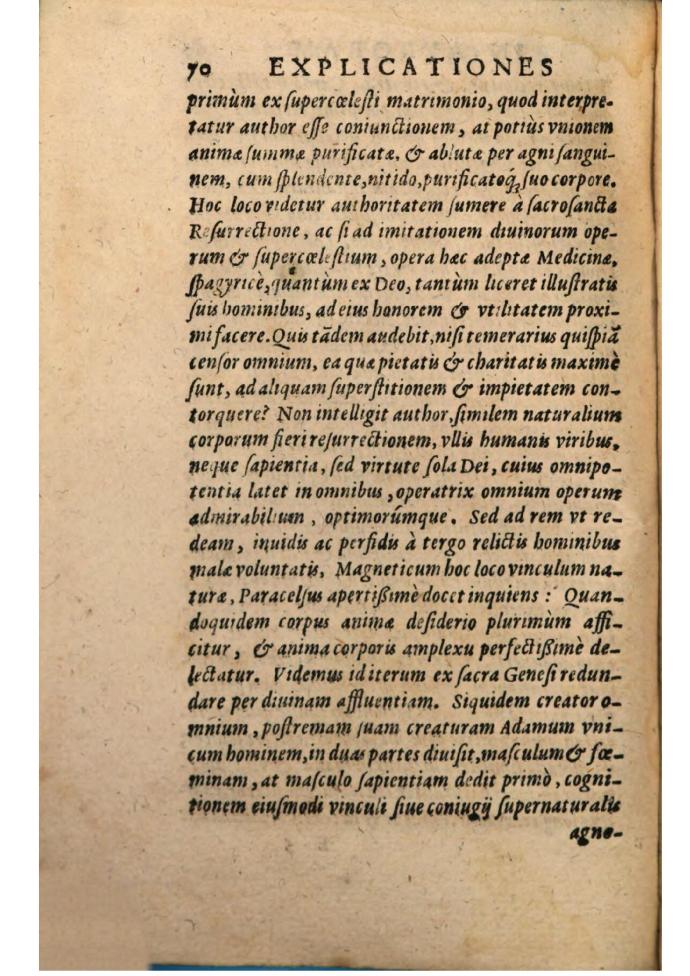 70 EXPLICATIONES
primùm ex ſupercœleſti matrimonio, quod interpre-
tatur author eſſe coniunctionem, at potiùs vnionem
animæ ſummæ purificatæ, & ablutæ per agni ſangui-
nem, cum ſplendente, nitido, purificatoq́; ſuo corpore.
Hoc loco videtur authoritatem ſumere à ſacroſancta
Reſurrectione, ac ſi ad imitationem diuinorum ope-
rum & ſupercœleſtium, opera hæc adeptæ Medicinæ,
ſpagyricè, quantùm ex Deo, tantùm liceret illuſtratis
ſuis hominibus, ad eius honorem & vtilitatem proxi-
mi facere. Quis tādem audebit, niſi temerarius quiſpiā
cenſor omnium, ea quæ pietatis & charitatis maximè
ſunt, ad aliquam ſuperſtitionem & impietatem con-
torquere? Non intelligit author, ſimilem naturalium
corporum fieri reſurrectionem, vllis humanis viribus,
neque ſapientia, ſed virtute ſola Dei, cuius omnipo-
tentia latet in omnibus, operatrix omnium operum
admirabilium, optimorúmque. Sed ad rem vt re-
deam, inuidis ac perfidis à tergo relictis hominibus
malæ voluntatis, Magneticum hoc loco vinculum na-
turæ, Paracelſus apertißimè docet inquiens: Quan-
doquidem corpus animæ deſiderio plurimùm affi-
citur, & anima corporis amplexu perfectißimè de-
lectatur. Videmus id iterum ex ſacra Geneſi redun-
dare per diuinam affluentiam. Siquidem creator o-
mnium, poſtremam ſuam creaturam Adamum vni-
cum hominem, in duas partes diuiſit, maſculum & fœ-
minam, at maſculo ſapientiam dedit primò, cogni-
tionem eiuſmodi vinculi ſiue coniugij ſupernaturalis
agno-